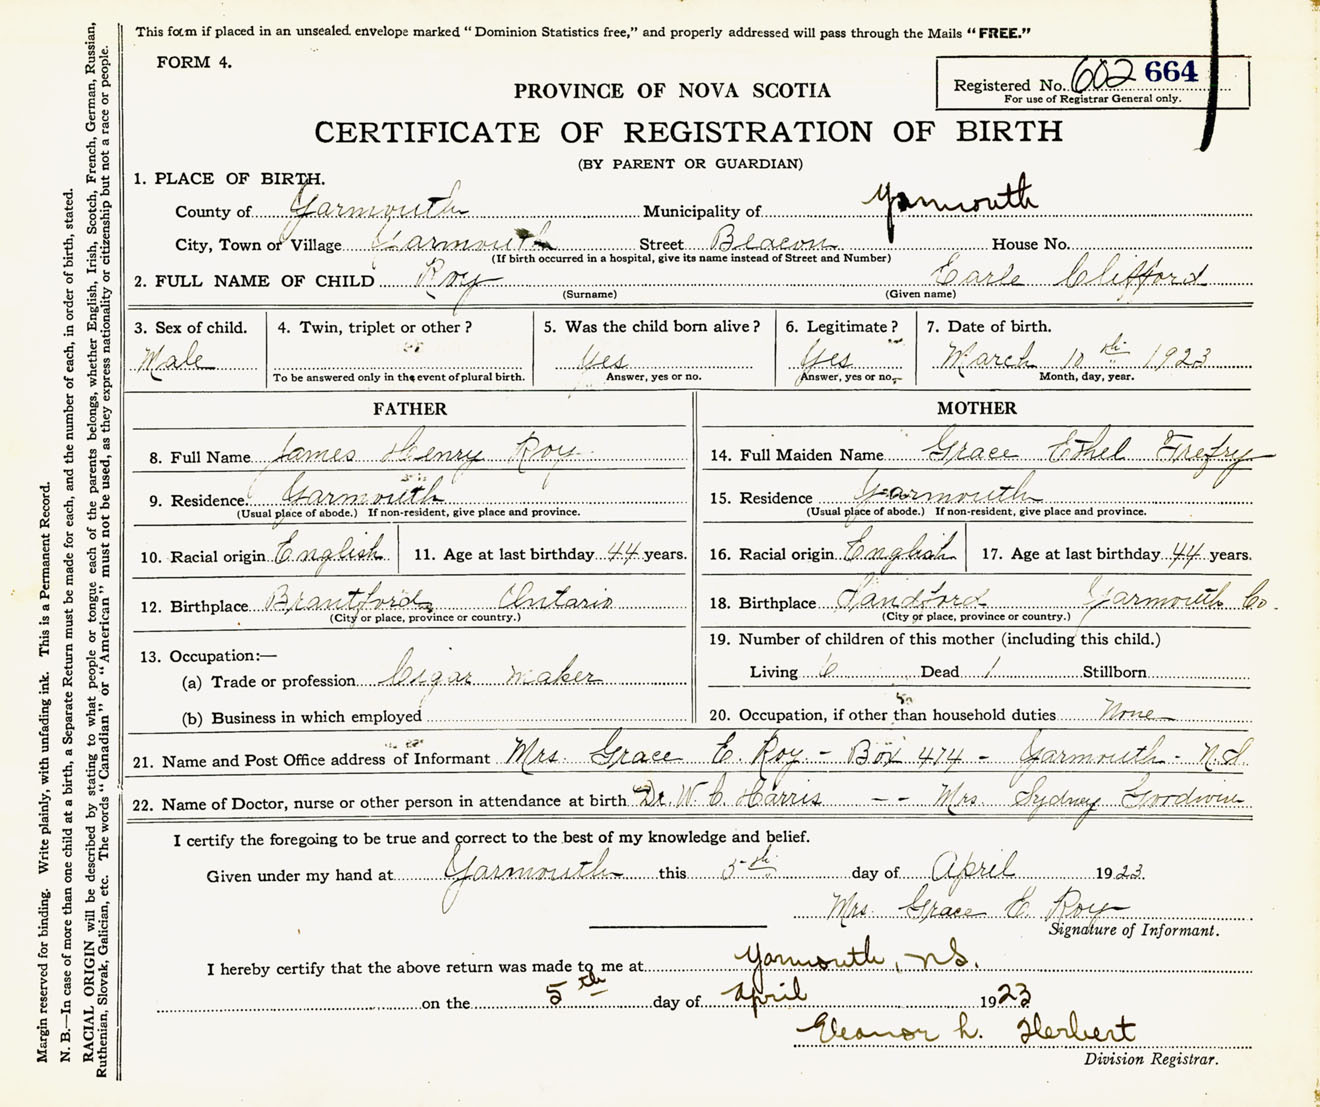 This form if placed in an unsealed envelope marked "Dominion Statistics free," and properly addressed will pass through the Mails "FREE."
FORM 4.
Registered No. 602 664
For use of Registrar General only.
PROVINCE OF NOVA SCOTIA
CERTIFICATE OF REGISTRATION OF BIRTH
(BY PARENT OR GUARDIAN)
1. PLACE OF BIRTH.
County of Yarmouth Municipality of Yarmouth
City, Town or Village Yarmouth Street Beacon House No.
(If birth occurred in a hospital, give its name instead of Street and Number)
2. FULL NAME OF CHILD Roy Earle Clifford
(Surname) (Given name)
3. Sex of child. 4. Twin, triplet or other? 5. Was the child born alive? 6. Legitimate? 7. Date of birth.
Male Yes Yes March 10th 1923
To be answered only in the event of plural birth. Answer, yes or no. Answer, yes or no. Month, day, year.
FATHER
8. Full Name James Henry Roy
9. Residence Yarmouth
(Usual place of abode.) If non-resident, give place and province.
10. Racial origin English 11. Age at last birthday 44 years.
12. Birthplace Brantford, Ontario
(City or place, province or country.)
13. Occupation:—
(a) Trade or profession Cigar maker
(b) Business in which employed
MOTHER
14. Full Maiden Name Grace Ethel Trefry
15. Residence Yarmouth
(Usual place of abode.) If non-resident, give place and province.
16. Racial origin English 17. Age at last birthday 44 years.
18. Birthplace Sandford Yarmouth Co.
(City or place, province or country.)
19. Number of children of this mother (including this child.)
Living 6 Dead 1 Stillborn
20. Occupation, if other than household duties None
21. Name and Post Office address of Informant Mrs. Grace E. Roy - Box 474 - Yarmouth - N.S.
22. Name of Doctor, nurse or other person in attendance at birth Dr. W. C. Harris - - Mrs. Sydney Goodwin
I certify the foregoing to be true and correct to the best of my knowledge and belief.
Given under my hand at Yarmouth this 5th day of April 1923.
Mrs. Grace E. Roy
Signature of Informant.
I hereby certify that the above return was made to me at Yarmouth, N.S.
on the 5th day of April 1923
Eleanor L. Herbert
Division Registrar.
Margin reserved for binding. Write plainly, with unfading ink. This is a Permanent Record.
N. B.—In case of more than one child at a birth, a Separate Return must be made for each, and the number of each, in order of birth, stated.
RACIAL ORIGIN will be described by stating to what people or tongue each of the parents belongs, whether English, Irish, Scotch, French, German, Russian,
Ruthenian, Slovak, Galician, etc. The words "Canadian" or "American" must not be used, as they express nationality or citizenship but not a race or people.